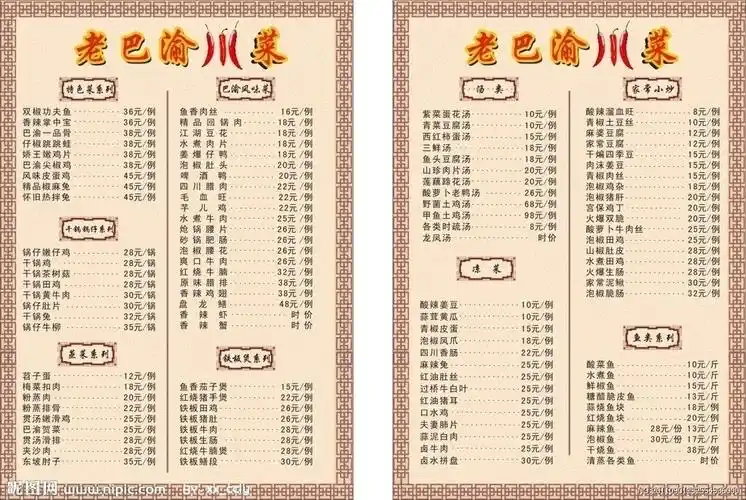 老巴渝川菜
特色菜系列
双椒功夫鱼 36元/例
香辣掌中宝 36元/例
巴渝一品骨 38元/例
仔椒跳跳蛙 38元/例
娇王嫩鸡片 38元/例
巴渝尖椒鸡 35元/例
风味皮蛋鸡 45元/例
精品椒麻兔 45元/例
怀旧热拌兔 45元/例
干锅锅仔系列
锅仔嫩仔鸡 28元/锅
干锅鸡 28元/锅
干锅茶树菇 28元/锅
干锅田鸡 28元/锅
干锅黄牛肉 30元/锅
锅仔肚片 30元/锅
干锅兔 32元/锅
锅仔牛柳 35元/锅
蒸菜系列
苕子蛋 12元/例
梅菜扣肉 18元/例
粉蒸肉 20元/例
粉蒸排骨 22元/例
贯汤嫩滑鸡 25元/例
巴渝贺菜 25元/例
贯汤滑排 28元/例
夹沙肉 28元/例
东坡肘子 35元/例
巴渝风味菜
鱼香肉丝 16元/例
精品回锅肉 18元/例
江湖豆花 18元/例
水煮肉片 18元/例
姜爆仔鸭 18元/例
泡椒肚头 20元/例
啤酒鸭 20元/例
四川腊肉 22元/例
毛血旺 22元/例
芋儿鸡 22元/例
水煮牛肉 25元/例
炝锅腰片 26元/例
砂锅肥肠 26元/例
泡椒腰花 26元/例
爽口牛肉 26元/例
红烧牛腩 32元/例
原味腊排 38元/例
香辣鸡翅 38元/例
盘龙鳝 48元/例
香辣虾 时价
香辣蟹 时价
铁板煲系列
鱼香茄子煲 15元/例
红烧猪手煲 22元/例
铁板田鸡 25元/例
铁板猪肚 26元/例
铁板牛肉 28元/例
铁板生肠 28元/例
红烧牛腩煲 28元/例
铁板鳝段 30元/例
老巴渝川菜
汤类
紫菜蛋花汤 10元/例
青菜豆腐汤 10元/例
西红柿蛋汤 15元/例
三鲜汤 18元/例
鱼头豆腐汤 18元/例
山珍肉片汤 20元/例
莲藕蹄花汤 20元/例
酸萝卜老鸭汤 26元/例
野菌土鸡汤 68元/例
甲鱼土鸡汤 98元/例
各类时疏汤 8元/例
龙凤汤 时价
凉菜
酸辣姜豆 10元/例
蒜茸黄瓜 10元/例
青椒皮蛋 15元/例
泡椒凤爪 18元/例
四川香肠 22元/例
麻辣兔 25元/例
红油肚丝 25元/例
过桥牛白叶 25元/例
红油猪耳 25元/例
口水鸡 25元/例
夫妻肺片 25元/例
蒜泥白肉 25元/例
卤牛肉 25元/例
卤水拼盘 30元/例
家常小炒
酸辣溜血旺 8元/例
青椒土豆丝 10元/例
麻婆豆腐 12元/例
家常豆腐 12元/例
干煸四季豆 15元/例
肉沫姜豆 15元/例
青椒肉丝 15元/例
泡椒鸡杂 18元/例
泡椒猪肝 20元/例
宫保鸡丁 20元/例
火爆双脆 20元/例
酸萝卜牛肉丝 25元/例
泡椒田鸡 25元/例
山椒肚皮 28元/例
水煮田鸡 28元/例
火爆生肠 28元/例
家常泥鳅 30元/例
泡椒脆肠 32元/例
鱼类系列
酸菜鱼 10元/斤
水煮鱼 10元/斤
鲜椒鱼 15元/斤
糖醋脆皮鱼 13元/斤
蒜烧鱼块 18元/例
红烧鱼块 20元/例
麻辣鱼 28元/份 13元/斤
泡椒鱼 30元/份 17元/斤
干烧鱼 38元/例
清蒸各类鱼 时价
昵图网 www.nipic.com